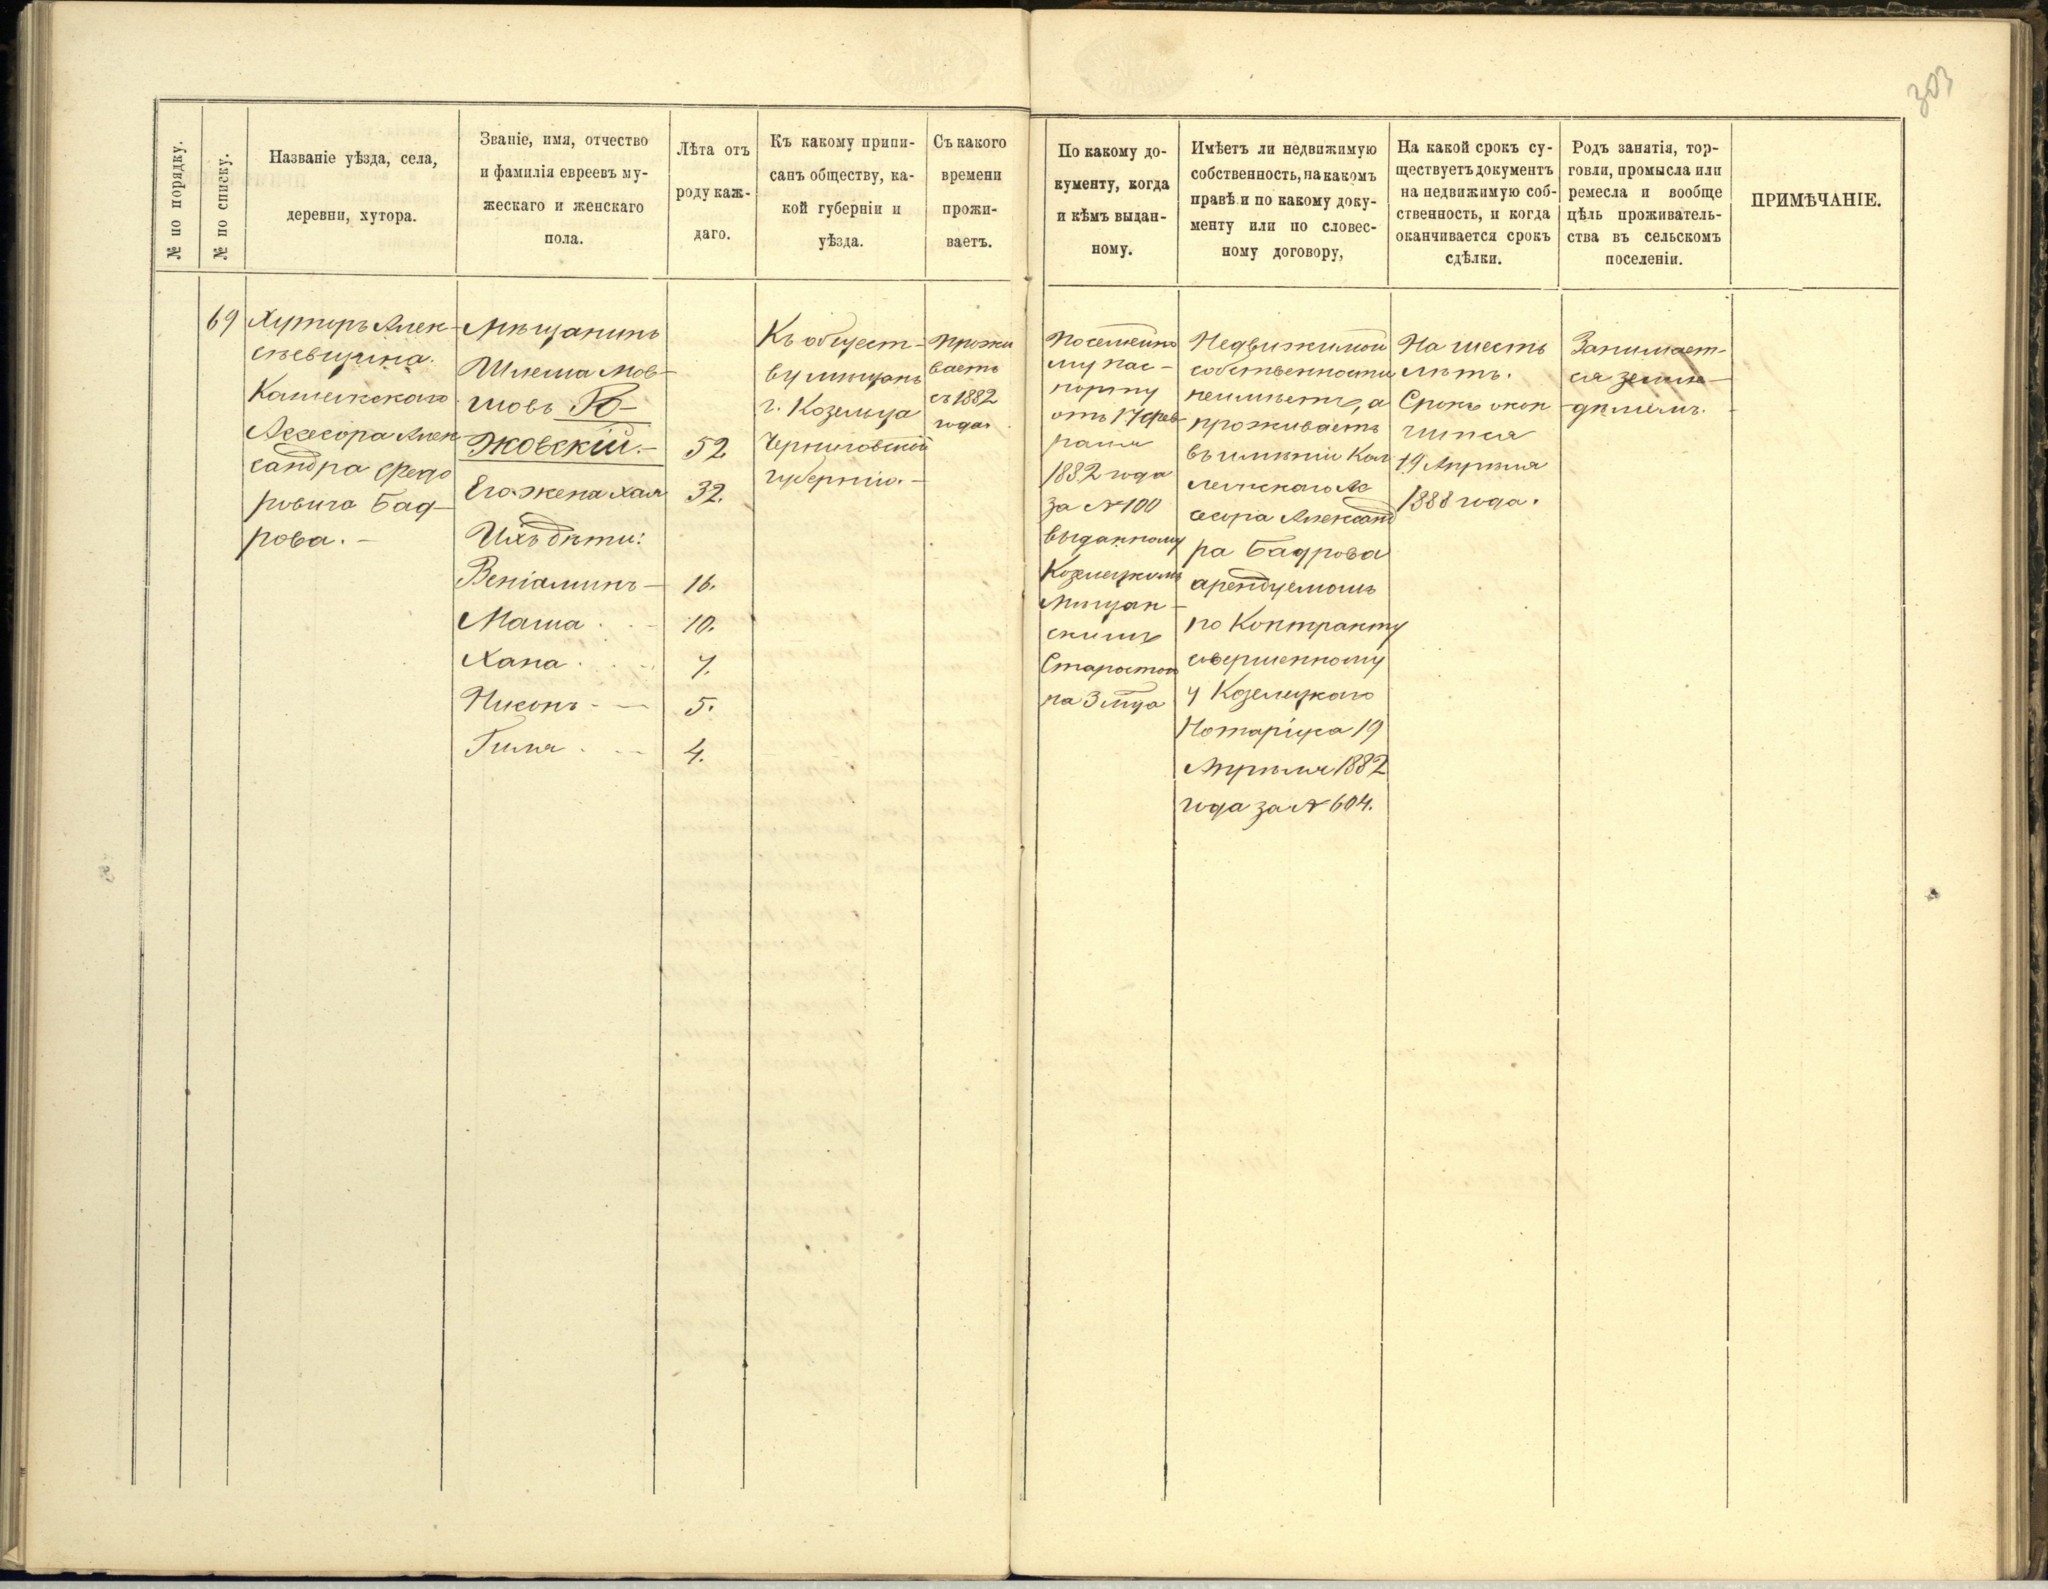 303
№ по порядку.
№ по списку.
Названіе уѣзда, села,
деревни, хутора.
Званіе, имя, отчество
и фамилія евреевъ му-
жескаго и женскаго
пола.
Лѣта отъ
роду каж-
даго.
Къ какому припи-
санъ обществу, ка-
кой губерніи и
уѣзда.
Съ какого
времени
прожи-
ваетъ.
По какому до-
кументу, когда
и кѣмъ выдан-
ному.
Имѣетъ ли недвижимую
собственность, на какомъ
правѣ и по какому доку-
менту или по словес-
ному договору,
На какой срокъ су-
ществуетъ документъ
на недвижимую соб-
ственность, и когда
оканчивается срокъ
сдѣлки.
Родъ занятія, тор-
говли, промысла или
ремесла и вообще
цѣль проживатель-
ства въ сельскомъ
поселеніи.
ПРИМѢЧАНІЕ.
69
Хуторъ Алек-
сѣевщина.
Ассесора Алек
сандра Федо
ровича Бад-
рова. -
Мѣщанинъ
Шлема Мов-
шовъ
Его жена Хая
Ихъ дѣти:
Веніаминъ -
Маша . . -
Хана . . -
Гиля . -
52
32.
16.
10.
7.
5.
4.
Къ общест-
ву мѣщанъ
г. Козельца
Черниговской
губерніи. -
Прожи
ваетъ
съ 1882
года
По семейно
му пас-
порту
отъ 17 фев-
раля
1882 года
за № 100
выданному
Козелецкимъ
Мѣщан-
скимъ
Старостой
на 3 м-ца
Недвижимой
собственности
неимѣетъ, а
проживаетъ
въ имѣніи Кол
лежскаго Ас
сесора Александ
ра Бадрова
арендуемомъ
по Контракту
совершенному
у Козелецкаго
Нотаріуса 19
Апрѣля 1882
года за № 604.
На шесть
лѣтъ.
Срокъ окон
чится
19 Апрѣля
1888 года.
Занимает-
ся земле-
дѣлiемъ.